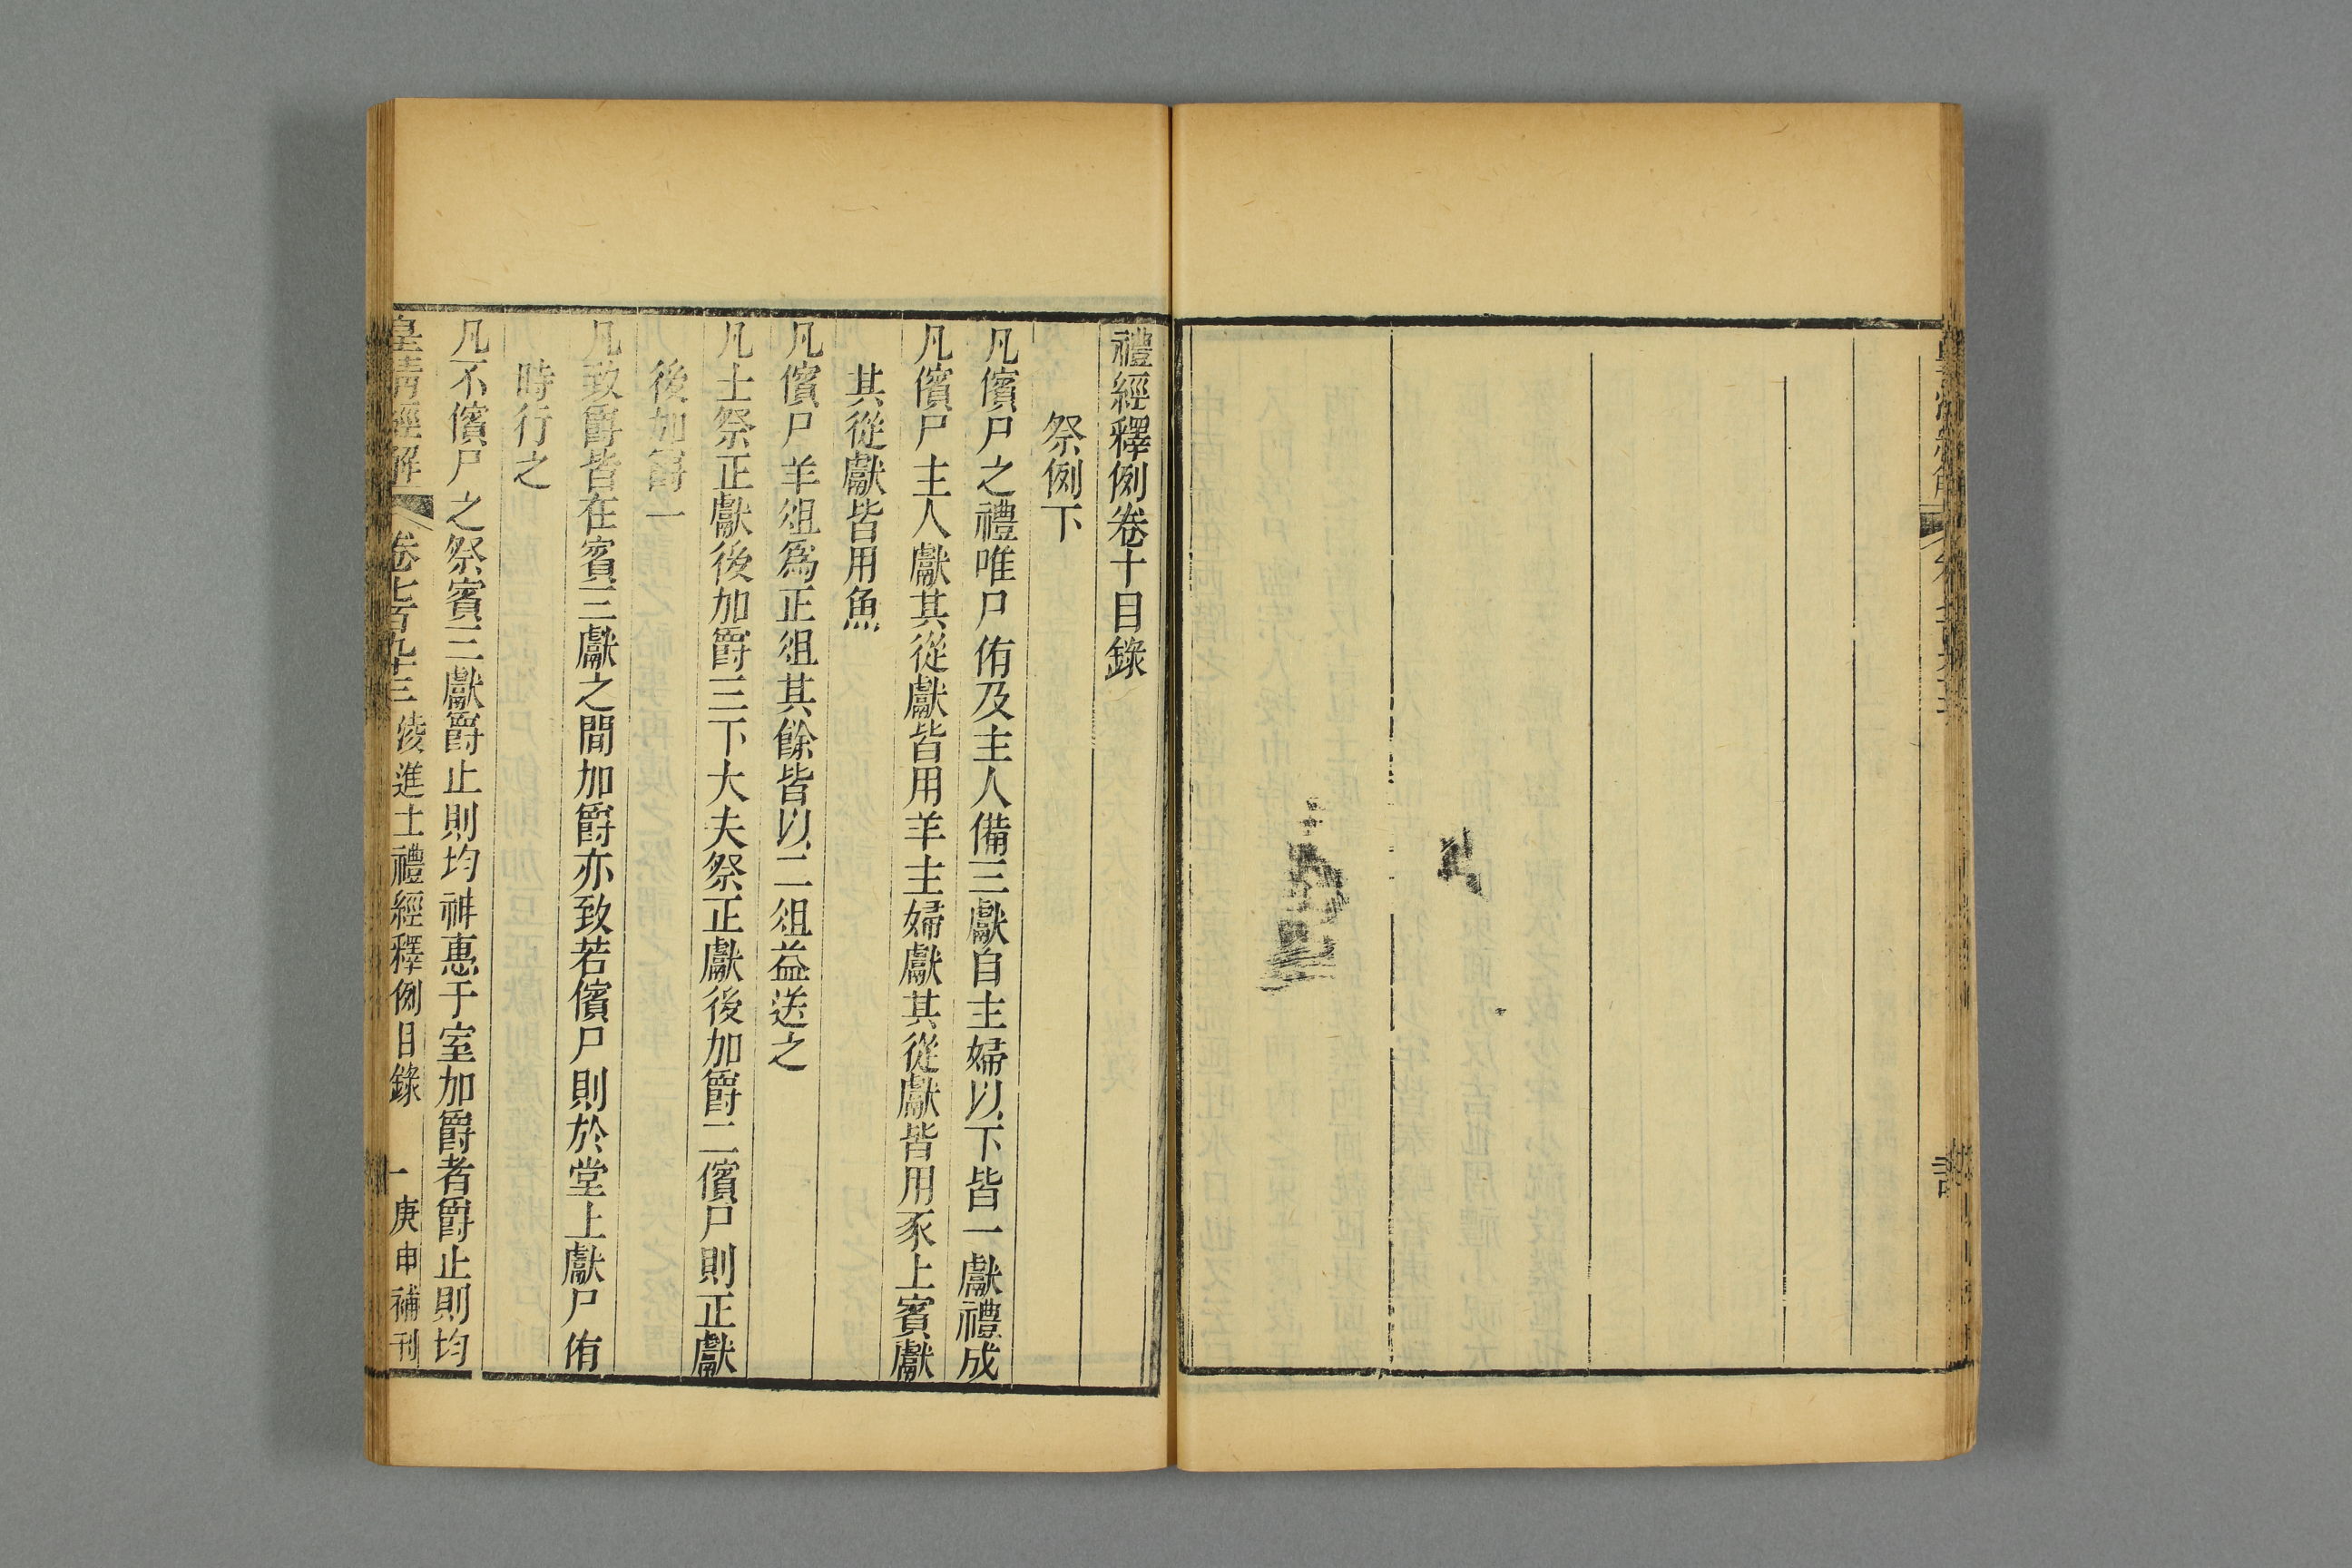 禮經釋例卷十目錄
祭例下
凡儐尸之禮唯尸侑及主人備三獻自主婦以下皆一獻禮成
凡儐尸主人獻其從獻皆用羊主婦獻其從獻皆用豕上賓獻
其從獻皆用魚
凡儐尸羊俎爲正俎其餘皆以二俎益送之
凡士祭正獻後加爵三下大夫祭正獻後加爵二儐尸則正獻
後加爵一
凡致爵皆在賓三獻之間加爵亦致若儐尸則於堂上獻尸侑
時行之
凡不儐尸之祭賓三獻爵止則均神惠于室加爵者爵止則均
皇清經解 卷七百九十三 淩進士禮經釋例目錄 一 庚申補刊